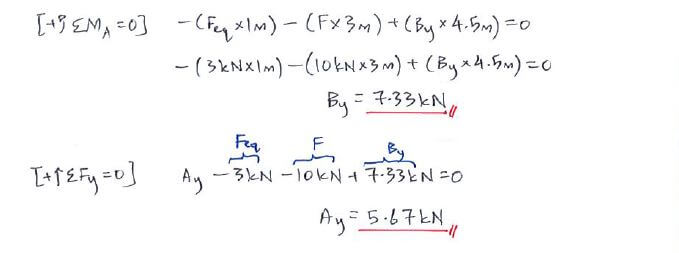 [+↺ ΣM_A = 0] -(F_eq × 1m) - (F × 3m) + (B_y × 4.5m) = 0
-(3kN × 1m) - (10kN × 3m) + (B_y × 4.5m) = 0
B_y = 7.33kN
Feq F By
[+↑ΣF_y = 0] A_y - 3kN - 10kN + 7.33kN = 0
A_y = 5.67kN